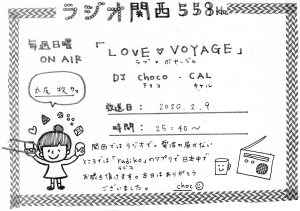 ラジオ関西 558 kHz
毎週日曜
ON AIR
「LOVE♡VOYAGE」
ラブ・ボヤージュ
DJ choco・CAL
チョコ キャル
放送日: 2020.2.9
時間: 25:40〜
関西ではラジオで。電波の届かない
ところでは「radiko」のアプリで日本中で
ラジコ
お聴き頂けます。本日はありがとう
ございました。
choco